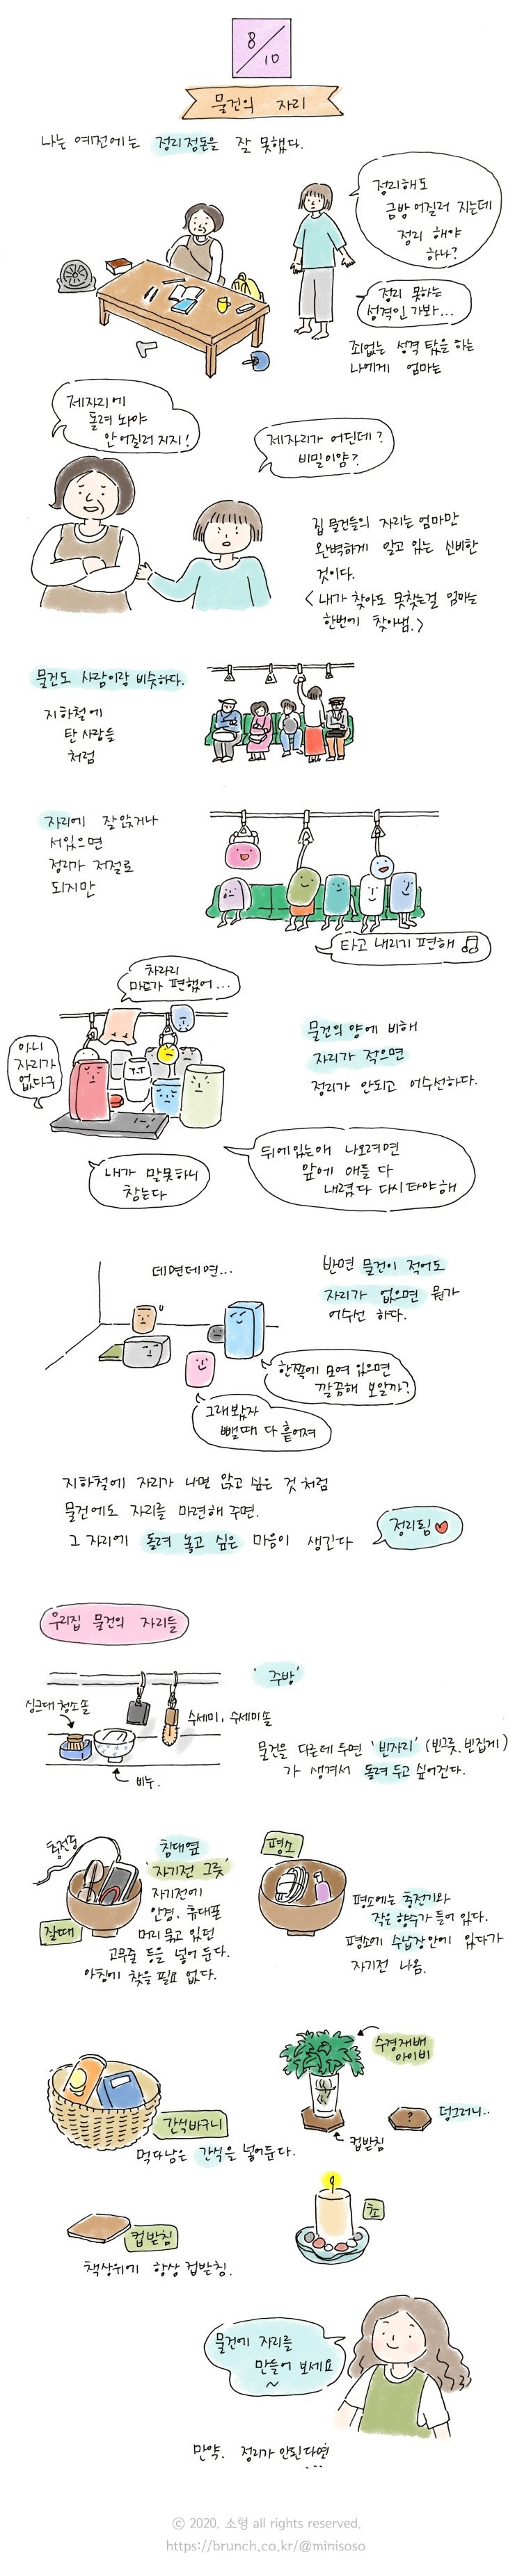 8/10
물건의 자리
나는 예전에는 정리정돈을 잘 못했다.
정리해도
금방 어질러 지는데
정리 해야
하나?
정리 못하는
성격인가봐...
죄없는 성격 탓을 하는
나에게 엄마는
제자리에
돌려 놔야
안어질러 지지!
제자리가 어딘데?
비밀이얌?
집 물건들의 자리는 엄마만
완벽하게 알고 있는 신비한
것이다.
<내가 찾아도 못찾는걸 엄마는
한번에 찾아냄.>
물건도 사람이랑 비슷하다.
지하철에
탄 사람들
처럼
자리에 잘 앉거나
서있으면
정리가 저절로
되지만
타고 내리기 편해 ♫
차라리
마트가 편했어...
아니
자리가
없다구
T.T
물건의 양에 비해
자리가 적으면
정리가 안되고 어수선하다.
내가 말못하니
참는다
뒤에있는애 나오려면
앞에 애들 다
내렸다 다시타야해
데면데면...
반면 물건이 적어도
자리가 없으면 뭔가
어수선 하다.
한쪽에 모여 있으면
깔끔해 보일까?
그래봤자
뺄때 다 흩어져
지하철에 자리가 나면 앉고 싶은 것 처럼
물건에도 자리를 마련해 주면.
그 자리에 돌려 놓고 싶은 마음이 생긴다
정리됨 ♥
우리집 물건의 자리들
'주방'
싱크대 청소솔
수세미, 수세미솔
비누.
물건을 다른데 두면 '빈자리' (빈그릇, 빈집게)
가 생겨서 돌려 두고 싶어진다.
충전중
침대옆
'자기전 그릇'
자기전에
안경, 휴대폰
머리 묶고 있던
고무줄 등을 넣어 둔다.
아침에 찾을 필요 없다.
잘때
평소
평소에는 충전기와
작은 향수가 들어 있다.
평소에 수납장안에 있다가
자기전 나옴.
간식바구니
먹다남은 간식을 넣어둔다.
수경재배
아이비
컵받침
?
덩그러니..
컵받침
책상위에 항상 컵받침.
초
물건에 자리를
만들어 보세요
~
만약. 정리가 안된다면
...
© 2020. 소형 all rights reserved.
https://brunch.co.kr/@minisoso